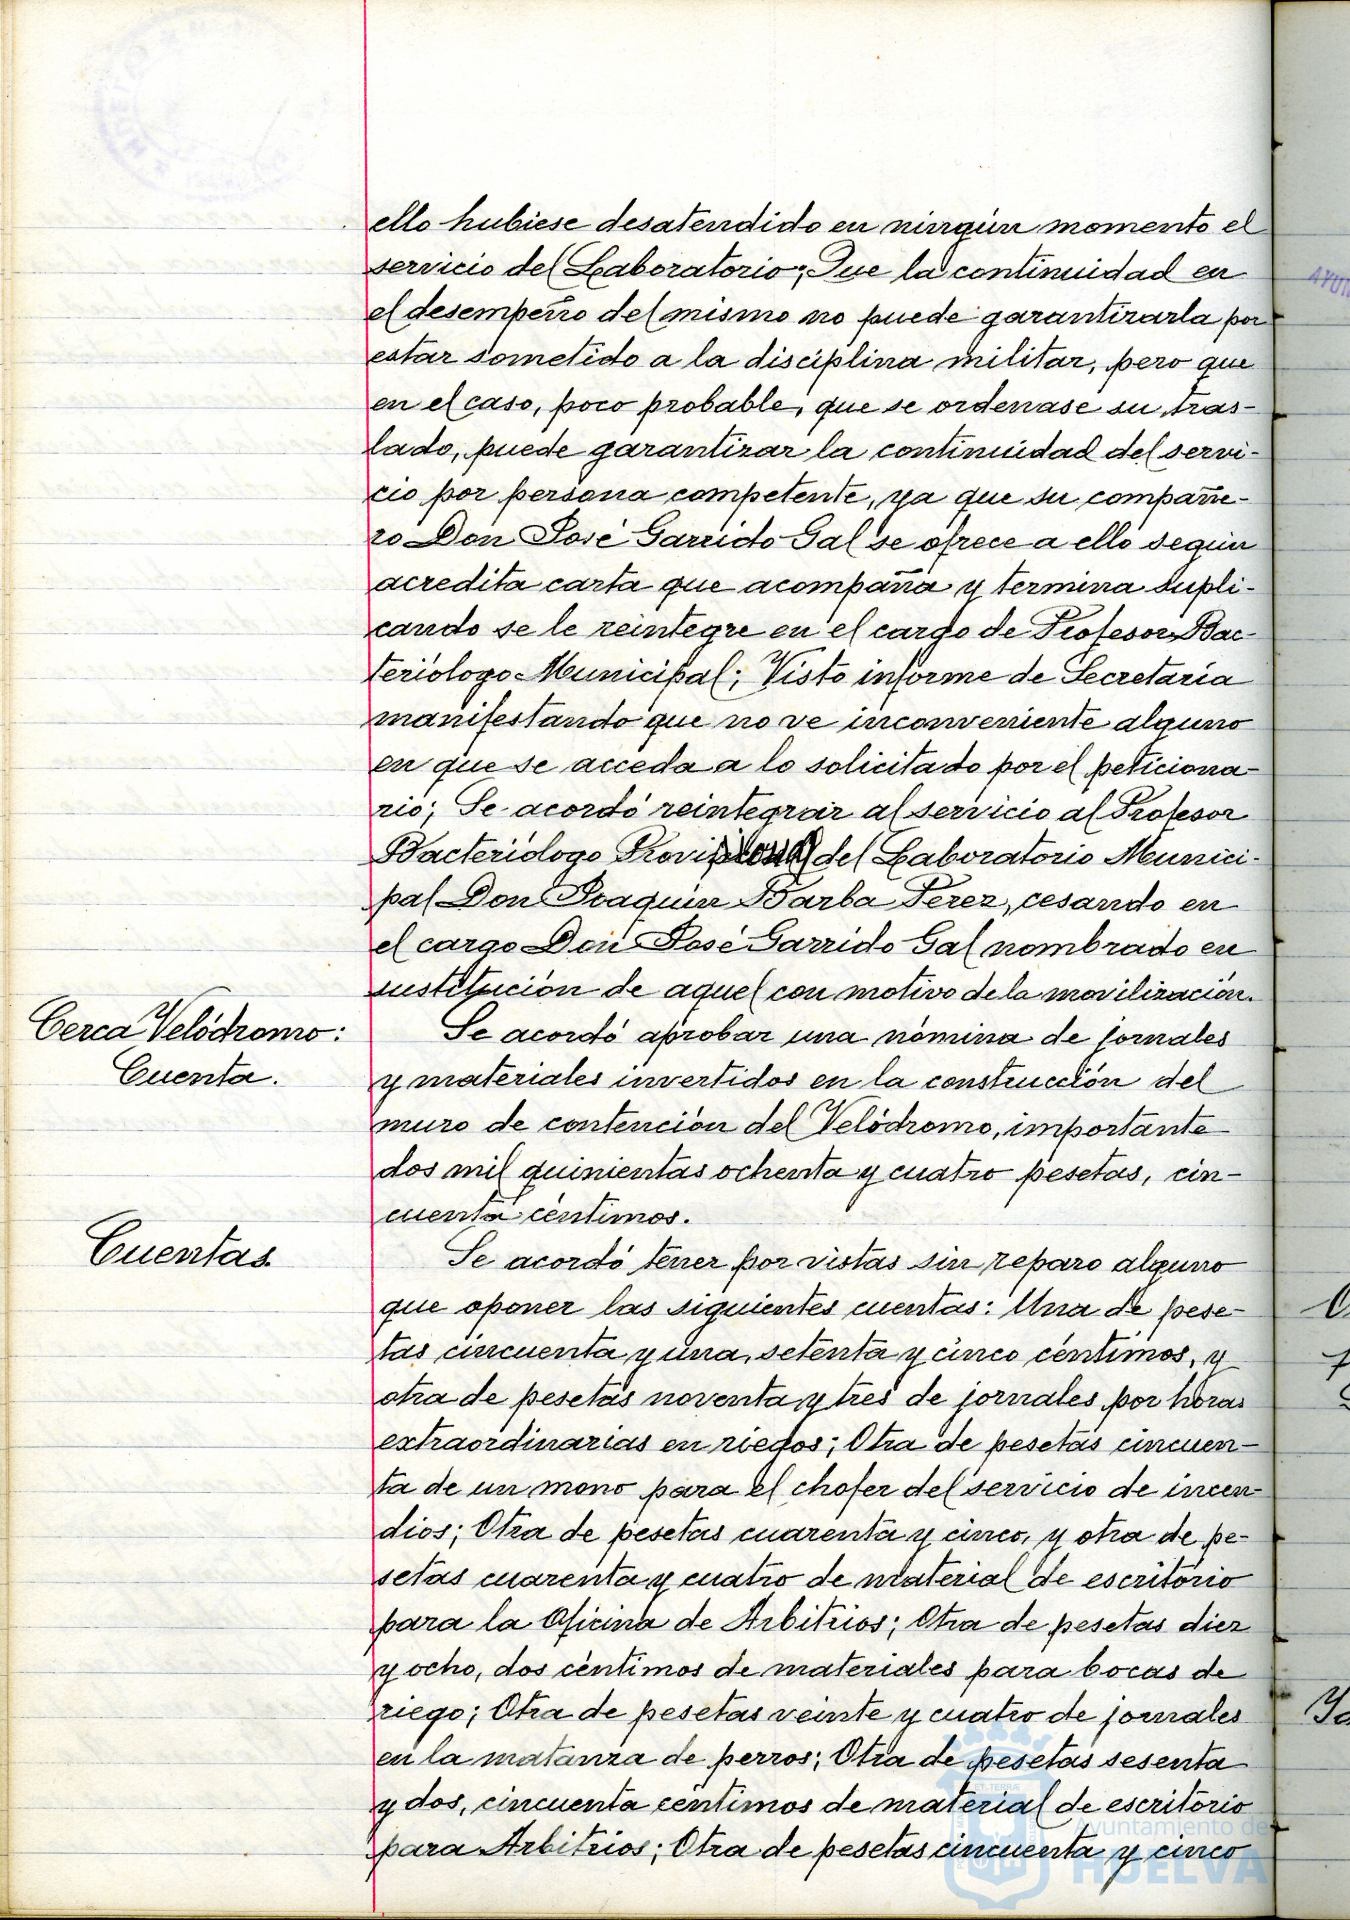 ello hubiese desatendido en ningún momento el
servicio del Laboratorio; Que la continuidad en
el desempeño del mismo no puede garantizarla por
estar sometido a la disciplina militar, pero que
en el caso, poco probable, que se ordenase su tras-
lado, puede garantizar la continuidad del servi-
cio por persona competente, ya que su compañe-
ro Don José Garrido Gal se ofrece a ello según
acredita carta que acompaña y termina supli-
cando se le reintegre en el cargo de Profesor Bac-
teriólogo Municipal; Visto informe de Secretaría
manifestando que no ve inconveniente alguno
en que se acceda a lo solicitado por el peticiona-
rio; Se acordó reintegrar al servicio al Profesor
Bacteriólogo del Laboratorio Munici-
pal Don Joaquín Barba Pérez, cesando en
el cargo Don José Garrido Gal nombrado en
sustitución de aquel con motivo de la movilización.
Cerca Velódromo:
Cuenta.
Se acordó aprobar una nómina de jornales
y materiales invertidos en la construcción del
muro de contención del Velódromo, importante
dos mil quinientas ochenta y cuatro pesetas, cin-
cuenta céntimos.
Cuentas.
Se acordó tener por vistas sin reparo alguno
que oponer las siguientes cuentas: Una de pese-
tas cincuenta y una, setenta y cinco céntimos, y
otra de pesetas noventa y tres de jornales por horas
extraordinarias en riegos; Otra de pesetas cincuen-
ta de un mono para el chofer del servicio de incen-
dios; Otra de pesetas cuarenta y cinco, y otra de pe-
setas cuarenta y cuatro de material de escritorio
para la Oficina de Arbitrios; Otra de pesetas diez
y ocho, dos céntimos de materiales para bocas de
riego; Otra de pesetas veinte y cuatro de jornales
en la matanza de perros; Otra de pesetas sesenta
y dos, cincuenta céntimos de material de escritorio
para Arbitrios; Otra de pesetas cincuenta y cinco
Ayuntamiento de
HUELVA